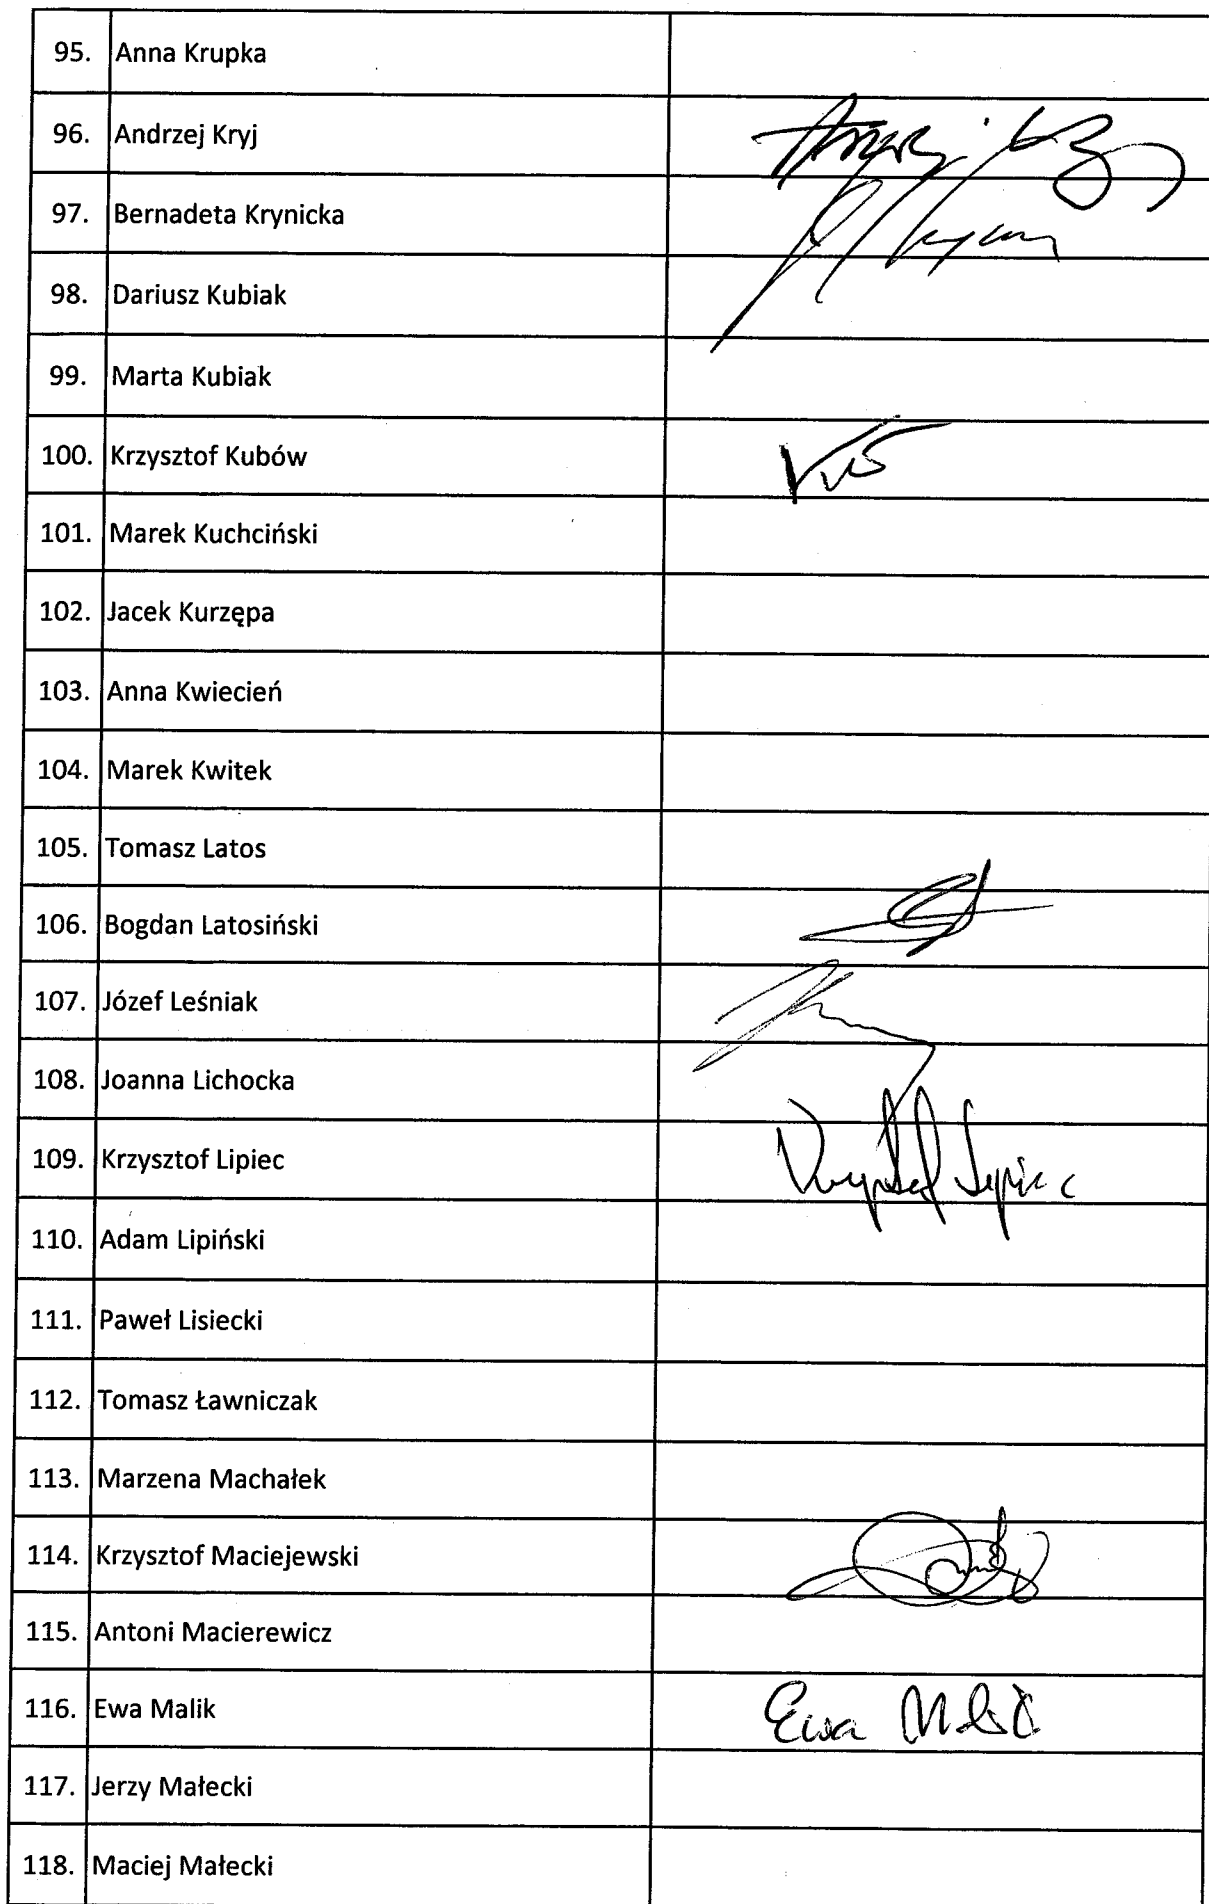 95. Anna Krupka
96. Andrzej Kryj
97. Bernadeta Krynicka
98. Dariusz Kubiak
99. Marta Kubiak
100. Krzysztof Kubów
101. Marek Kuchciński
102. Jacek Kurzępa
103. Anna Kwiecień
104. Marek Kwitek
105. Tomasz Latos
106. Bogdan Latosiński
107. Józef Leśniak
108. Joanna Lichocka
109. Krzysztof Lipiec Krzysztof Lipiec
110. Adam Lipiński
111. Paweł Lisiecki
112. Tomasz Ławniczak
113. Marzena Machałek
114. Krzysztof Maciejewski
115. Antoni Macierewicz
116. Ewa Malik Ewa Malik
117. Jerzy Małecki
118. Maciej Małecki